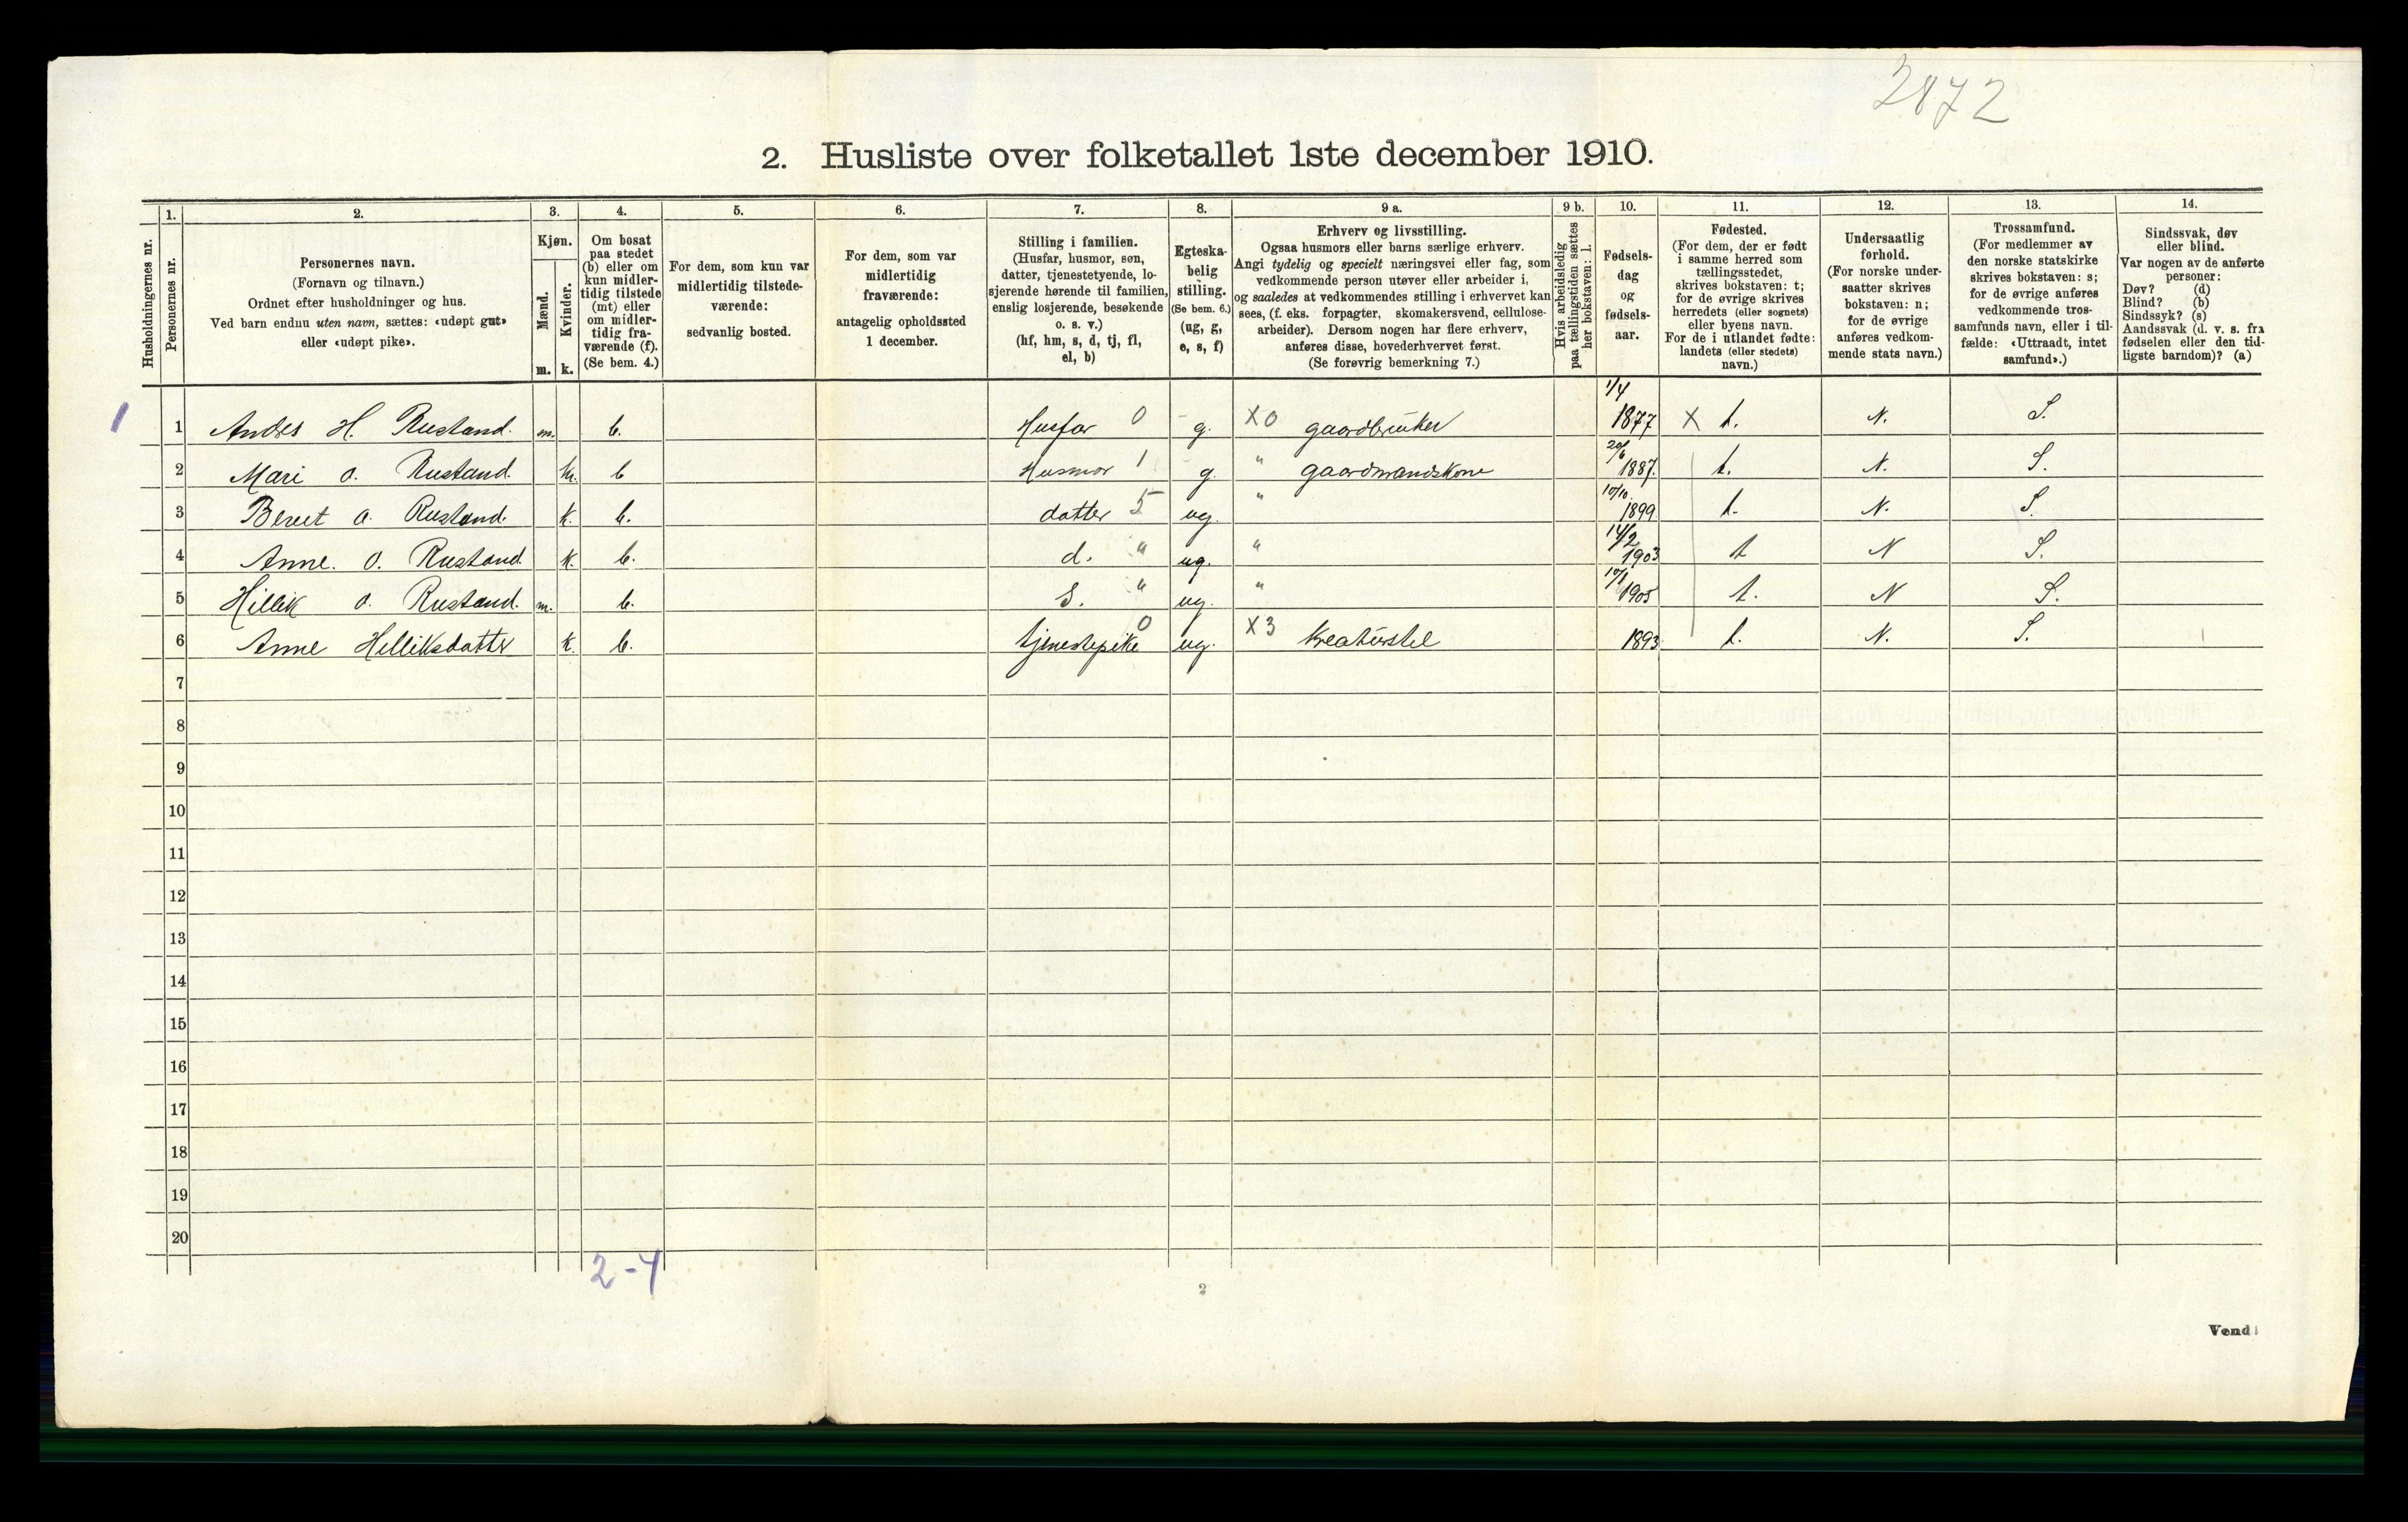 2872
2. Husliste over folketallet 1ste december 1910.
Husholdningernes nr.
1.
Personernes nr.
2.
Personernes navn.
(Fornavn og tilnavn.)
Ordnet efter husholdninger og hus.
Ved barn endnu uten navn, sættes: «udøpt gut»
eller «udøpt pike».
3.
Kjøn.
Mænd.
Kvinder.
m. k.
4.
Om bosat
paa stedet
(b) eller om
kun midler-
tidig tilstede
(mt) eller
om midler-
tidig fra-
værende (f).
(Se bem. 4.)
5.
For dem, som kun var
midlertidig tilstede-
værende:
sedvanlig bosted.
6.
For dem, som var
midlertidig
fraværende:
antagelig opholdssted
1 december.
7.
Stilling i familien.
(Husfar, husmor, søn,
datter, tjenestetyende, lo-
sjerende hørende til familien,
enslig losjerende, besøkende
o. s. v.)
(hf, hm, s, d, tj, fl,
el, b)
8.
Egteska-
belig
stilling.
(Se bem. 6.)
(ug, g,
e, s, f)
9 a.
Erhverv og livsstilling.
Ogsaa husmors eller barns særlige erhverv.
Angi tydelig og specielt næringsvei eller fag, som
vedkommende person utøver eller arbeider i,
og saaledes at vedkommendes stilling i erhvervet kan
sees, (f. eks. forpagter, skomakersvend, cellulose-
arbeider). Dersom nogen har flere erhverv,
anføres disse, hovederhvervet først.
(Se forøvrig bemerkning 7.)
9 b.
Hvis arbeidsledig
paa tællingstiden sættes
her bokstaven: l.
10.
Fødsels-
dag
og
fødsels-
aar.
11.
Fødested.
(For dem, der er født
i samme herred som
tællingsstedet,
skrives bokstaven: t;
for de øvrige skrives
herredets (eller sognets)
eller byens navn.
For de i utlandet fødte:
landets (eller stedets)
navn.)
12.
Undersaatlig
forhold.
(For norske under-
saatter skrives
bokstaven: n;
for de øvrige
anføres vedkom-
mende stats navn.)
13.
Trossamfund.
(For medlemmer av
den norske statskirke
skrives bokstaven: s;
for de øvrige anføres
vedkommende tros-
samfunds navn, eller i til-
fælde: «Uttraadt, intet
samfund».)
14.
Sindssvak, døv
eller blind.
Var nogen av de anførte
personer:
Døv? (d)
Blind? (b)
Sindssyk? (s)
Aandssvak (d. v. s. fra
fødselen eller den tid-
ligste barndom)? (a)
1 1 Andres H. Rustand. m. b. Husfar 0 g. X0 gaardbruker 1/4 1877 X t. N. S.
2 Mari O. Rustand. k. b Husmor 1 g. " gaardmandskone 20/6 1887. t. N. S.
3 Berit A. Rustand. k. b. datter 5 ug. " 10/10 1899 t. N. S.
4 Anne. O. Rustand k. b. d. " ug. " 14/2 1903 t N S.
5 Hillik O. Rustand. m. b. S. " ug. " 10/1 1905 t. N S.
6 Anne Helliksdatter k. b. tjenestepike 0 ug. X3 kreaturstel 1893 t. N. S.
7
8
9
10
11
12
13
14
15
16
17
18
19
20
2-4
2
Vend!